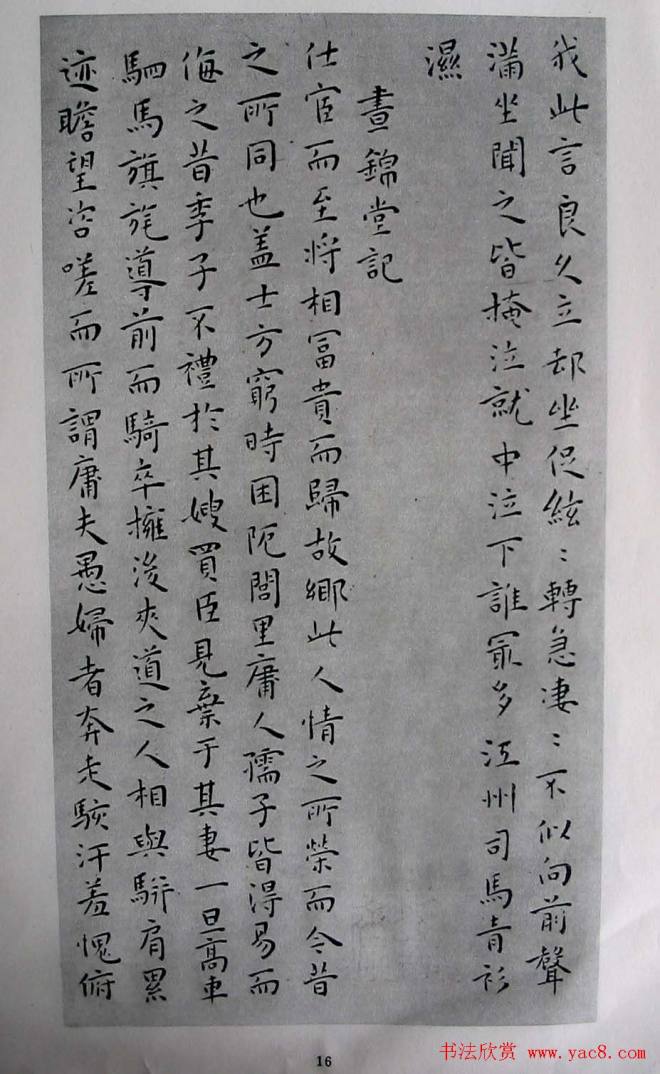 我此言良久立却坐促絃〻轉急凄〻不似向前聲
滿坐聞之皆掩泣就中泣下誰冣多江州司馬青衫
濕
晝錦堂記
仕宦而至將相冨貴而歸故鄉此人情之所榮而今昔
之所同也盖士方窮時困阨閭里庸人孺子皆得易而
侮之昔季子不禮於其嫂買臣見棄于其妻一旦高車
駟馬旗旄導前而騎卒擁後夾道之人相與駢肩累
迹瞻望咨嗟而所謂庸夫愚婦者奔走駭汗羞愧俯
16
书法欣赏 www.yac8.com